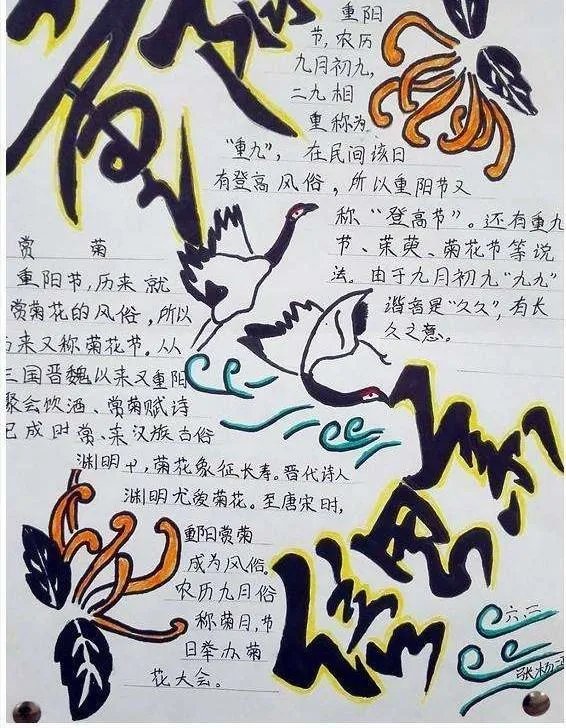 重阳
重阳
节,农历
九月初九,
二九相
重称为
"重九",在民间该日
有登高风俗,所以重阳节又
称"登高节"。还有重九
节、茱萸、菊花节等说
法。由于九月初九"九九"
谐音是"久久",有长
久之意。
赏 菊
重阳节,历来就
赏菊花的风俗,所以
历来又称菊花节。从
三国晋魏以来又重阳
聚会饮酒、赏菊赋诗
已成时常、汉族古俗
渊明中,菊花象征长寿。晋代诗人
渊明尤爱菊花。至唐宋时,
重阳赏菊
成为风俗。
农历九月俗
称菊月,节
日举办菊
花大会。
六.二
张杨